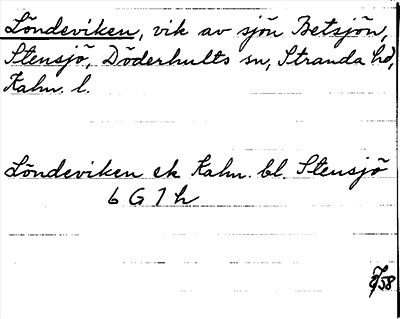 Löndeviken, vik av sjön Betsjön,
Stensjö, Döderhults sn, Stranda hd,
Kalm. l.
Löndeviken ek Kalm. bl. Stensjö
6 G 7 h